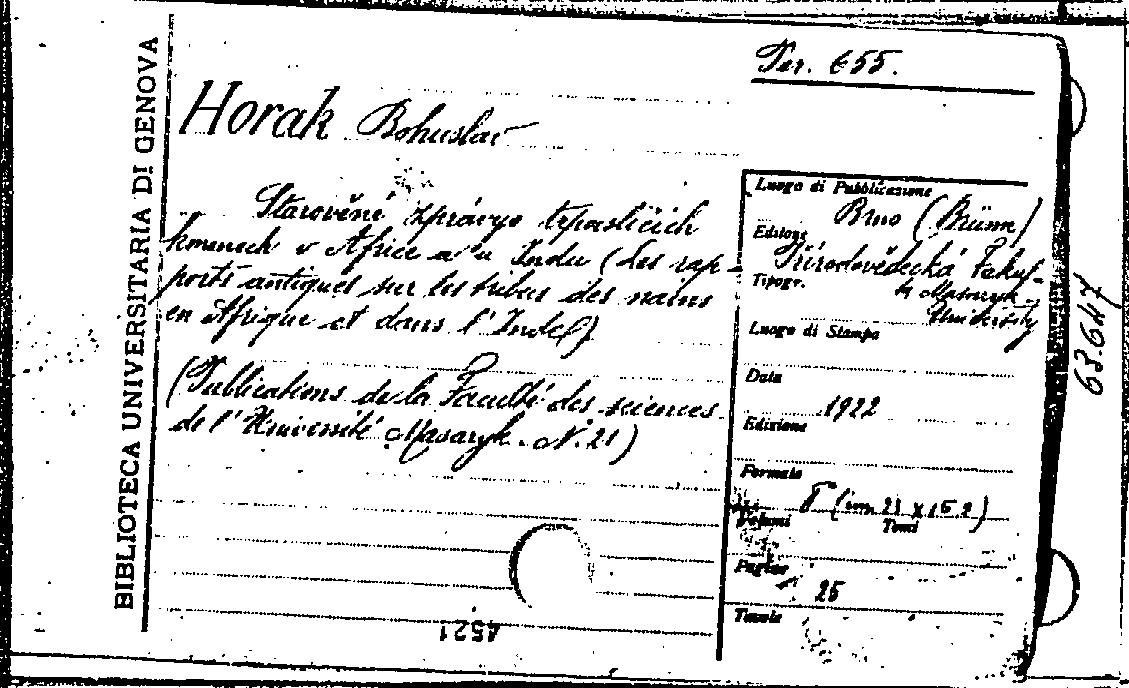 BIBLIOTECA UNIVERSITARIA DI GENOVA
Per. 655.
Horak Bohuslav
Starověné zprávyo trpasličich
kmenech v Africe a u Indu (Les rap-
ports antiques sur les tribus des nains
en Afrique et dans l'Inde)
(Publications de la Faculté des sciences
de l'Université Masaryk. N. 21)
Luogo di Pubblicazione
Brno (Brünn)
Editore
Přírodovědecká Fakul-
ty Masaryk
University
Tipogr.
Luogo di Stampa
Data
1922
Edizione
Formato
8° (cm. 23 x 15.2)
Volumi Tomi
Pagine
25
Tavole
4521
63.647